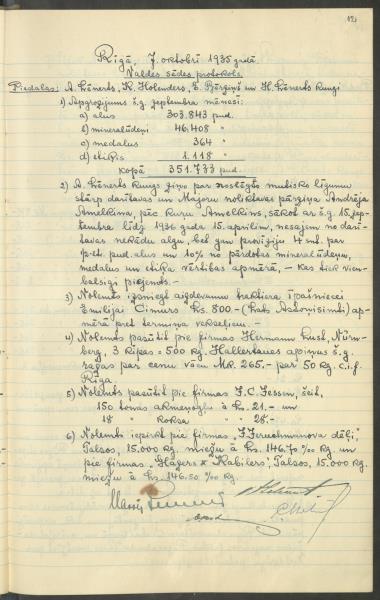 Rīgā, 7. oktobrī 1935 gadā
Valdes sēdes protokols
Piedalās: A. Lēnerts, K. Holenders, E. Bērziņš un H. Lēnerts kungi
1) Apgrozījums š.g. septembra mēnesī:
a) alus 303.843 pud.
b) mineralūdeņi 46.408 "
c) medalus 364 "
d) etiķis 1.118 "
Kopā 351.733 pud.
2) A. Lēnerts kungs ziņo par noslēgto mutisko līgumu
starp darītavas un Majoru noliktavas pārziņa Andrēja
Amelkina, pēc kuŗu Amelkins, sākot ar š.g. 15. sep-
tembra līdz 1936 gada 15. aprīlim, nesaņem no darī-
tavas nekādu algu bet gan proviziju 4 snt. par
pud. alus un 10% no pārdotās mineralūdeņu,
medalus un etiķa vērtības apmērā, — kas tiek vien-
balsīgi pieņemts. —
3) Nolemts izsniegt aizdevumu traktiera īpašniecei
Emilijai Cimurs Ls. 800.- (Lats Astoņisimti) ap-
mērā pret termiņa vekseļiem. —
4) Nolemts pasūtīt pie firmas Hermann Lust, Nürn-
berg, 3 ķīpas = 500 kg. Hallertaues apiņus š.g.
ražas par cenu vācu MK. 265.- par 50 kg. c.i.f.
Rīga
5) Nolemts pasūtīt pie firmas J. C. Jessen, šeit,
150 tonas akmeņogļu à Ls. 21.- un
18 " Koksa " " 28.-
6) Nolemts iepirkt pie firmas "J. Jeruchmanova dēļi",
Talsos, 15.000 kg. miežu à Ls. 146.70 ‰ kg. un
pie firmas "Hāzers & Kabilers", Talsos, 15.000 kg.
miežu à Ls. 146.50 ‰ kg.